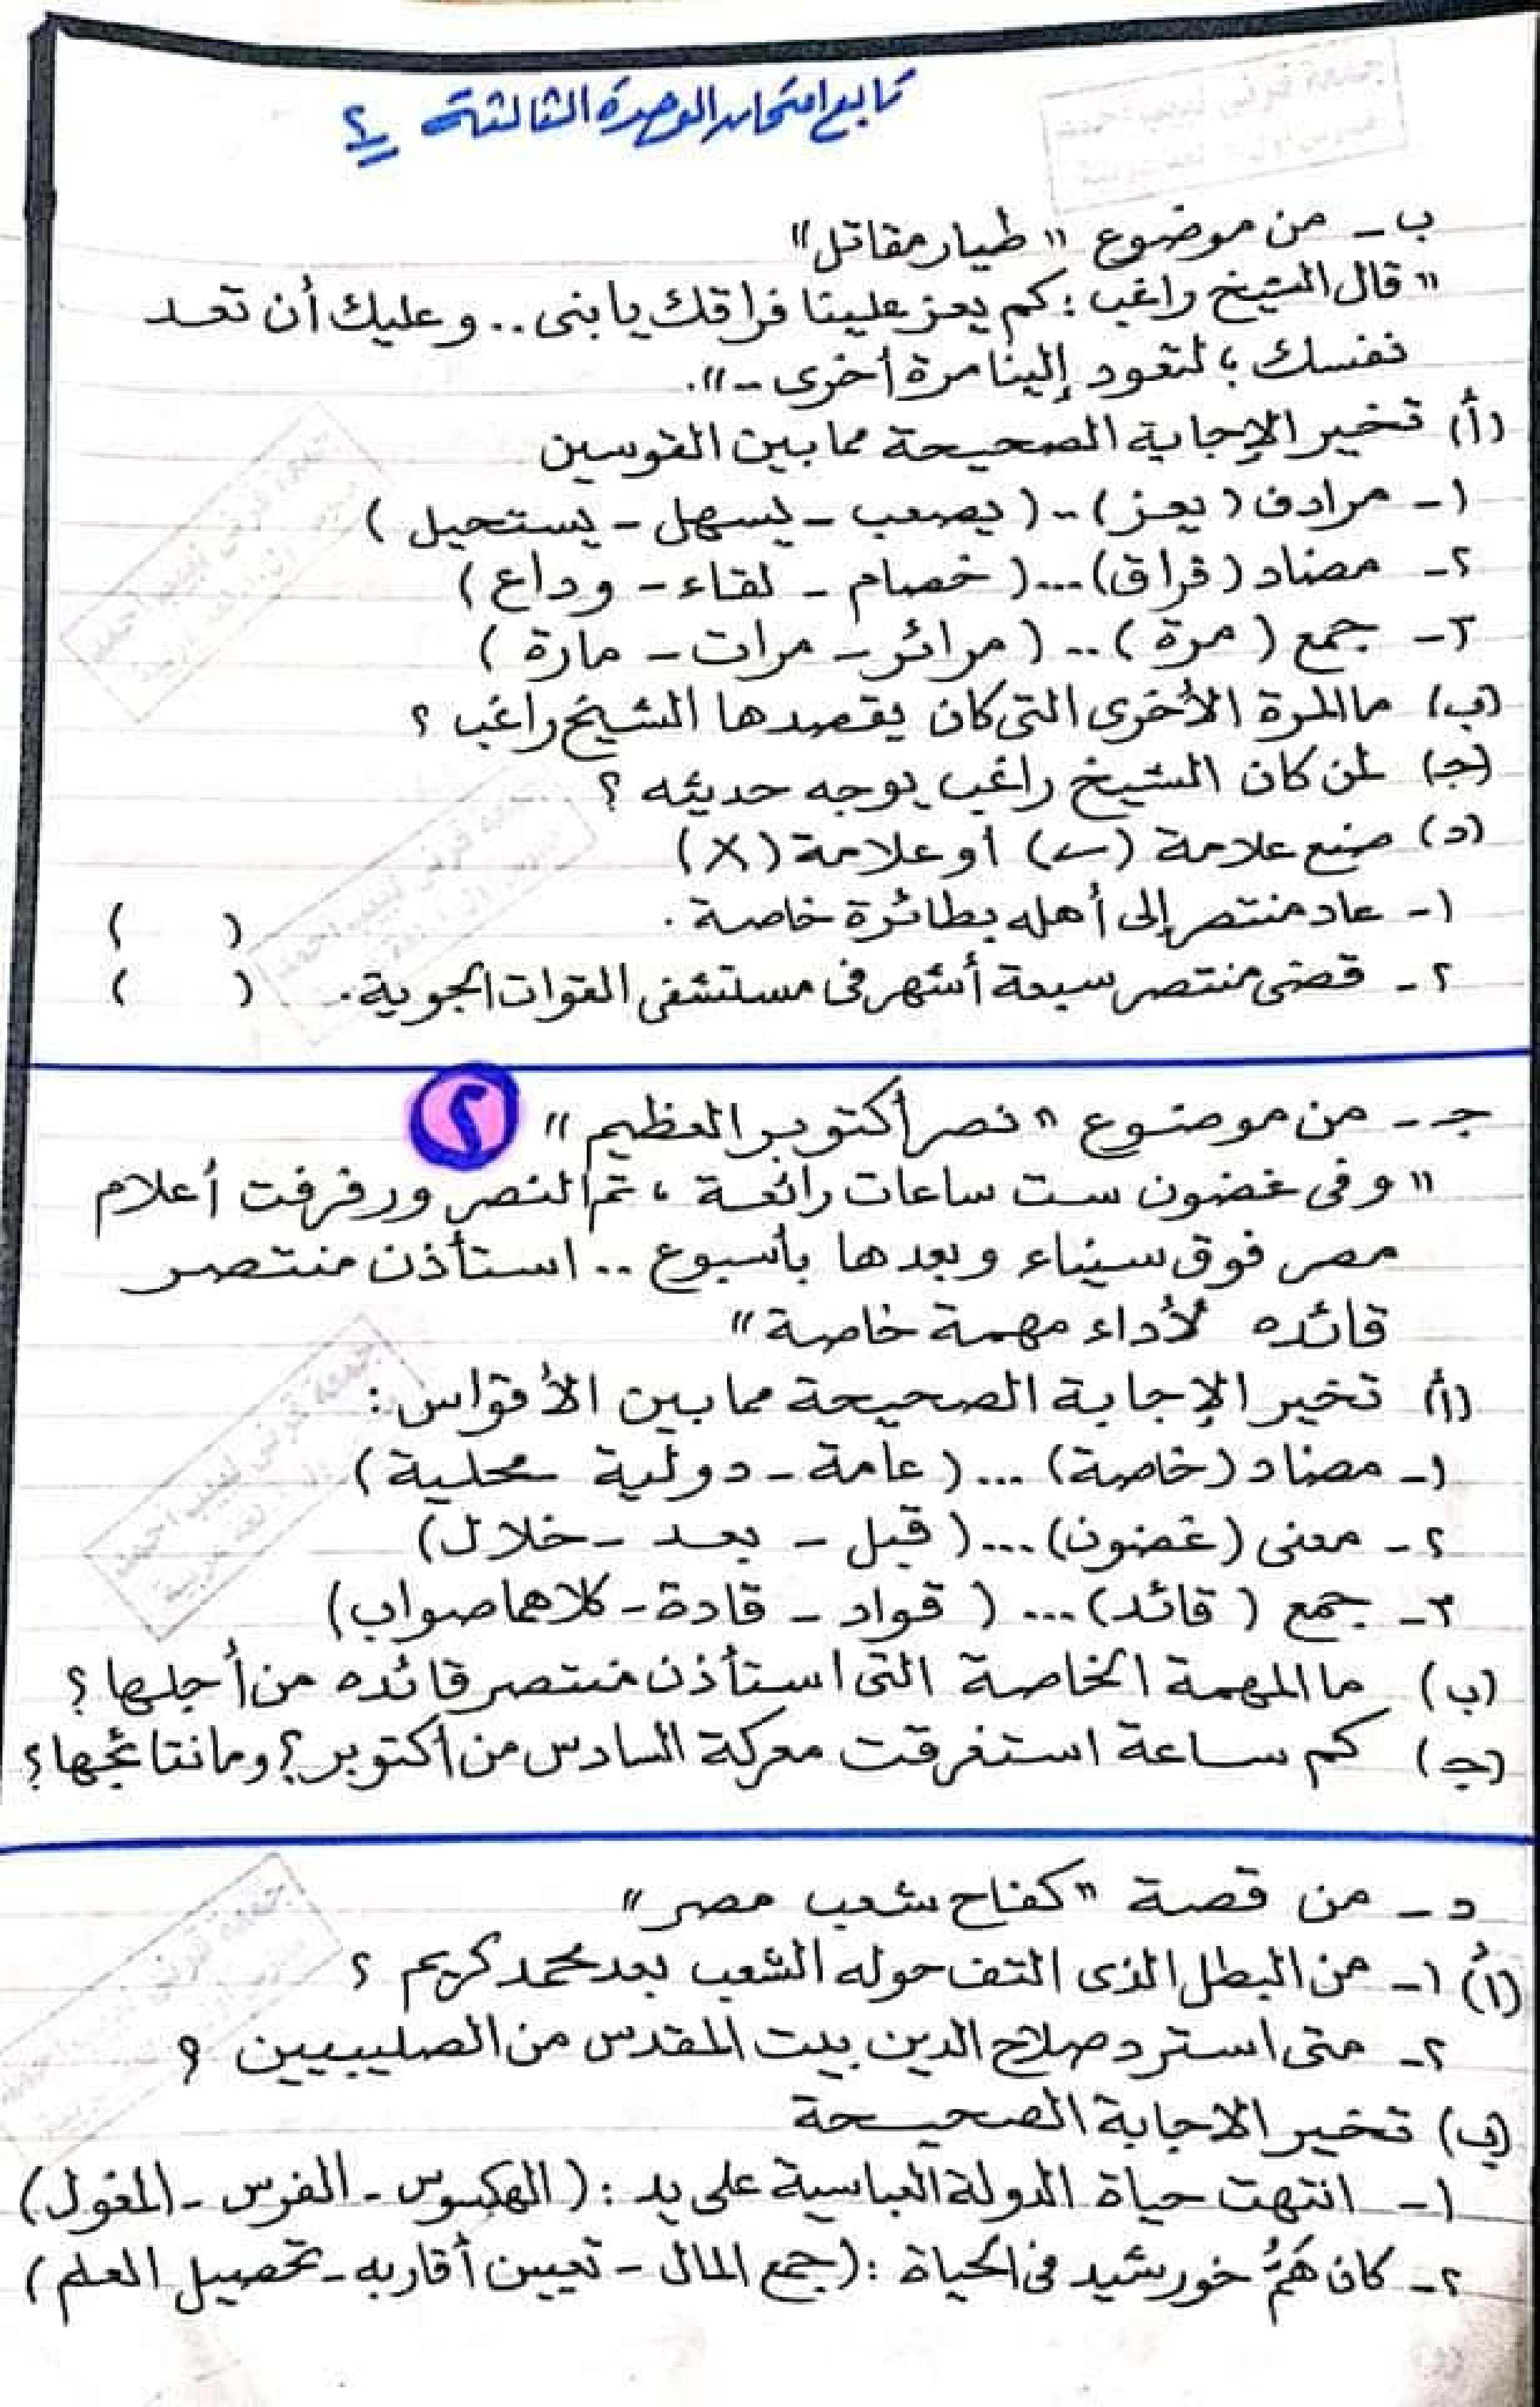 تابع امتحان الوحدة الثالثة ؟
ب - من موضوع " طيار مقاتل "
" قال الشيخ راغب : كم يعز علينا فراقك يا بنى .. وعليك أن تعد
نفسك ؛ لتعود إلينا مرة أخرى - ".
(أ) تخير الإجابة الصحيحة مما بين القوسين
١- مرادف ( يعز ) .. ( يصعب - يسهل - يستحيل )
٢- مضاد ( فراق ) ... ( خصام - لقاء - وداع )
٣- جمع ( مرة ) .. ( مرائر - مرات - مارة )
(ب) ما المرة الأخرى التى كان يقصدها الشيخ راغب ؟
(جـ) لمن كان الشيخ راغب يوجه حديثه ؟
(د) ضع علامة (✓) أو علامة (X)
١- عاد منتصر إلى أهله بطائرة خاصة . ( )
٢- قضى منتصر سبعة أشهر فى مستشفى القوات الجوية . ( )
جـ - من موضوع " نصر أكتوبر العظيم " ٢
" وفى غضون ست ساعات رائعة ، تم النصر ورفرفت أعلام
مصر فوق سيناء وبعدها بأسبوع .. استأذن منتصر
قائده لأداء مهمة خاصة "
(أ) تخير الإجابة الصحيحة مما بين الأقواس :
١- مضاد (خاصة) ... ( عامة - دولية - محلية )
٢- معنى (غضون) ... ( قبل - بعد - خلال )
٣- جمع ( قائد ) ... ( قواد - قادة - كلاهما صواب )
(ب) ما المهمة الخاصة التى استأذن منتصر قائده من أجلها ؟
(جـ) كم ساعة استغرقت معركة السادس من أكتوبر ؟ وما نتائجها ؟
د - من قصة " كفاح شعب مصر "
(أ) ١- من البطل الذى التف حوله الشعب بعد محمد كريم ؟
٢- متى استرد صلاح الدين بيت المقدس من الصليبيين ؟
(ب) تخير الاجابة الصحيحة
١- انتهت حياة الدولة العباسية على يد : ( الهكسوس - الفرس - المغول )
٢- كان هَمُّ خورشيد فى الحياة : ( جمع المال - تعيين أقاربه - تحصيل العلم )